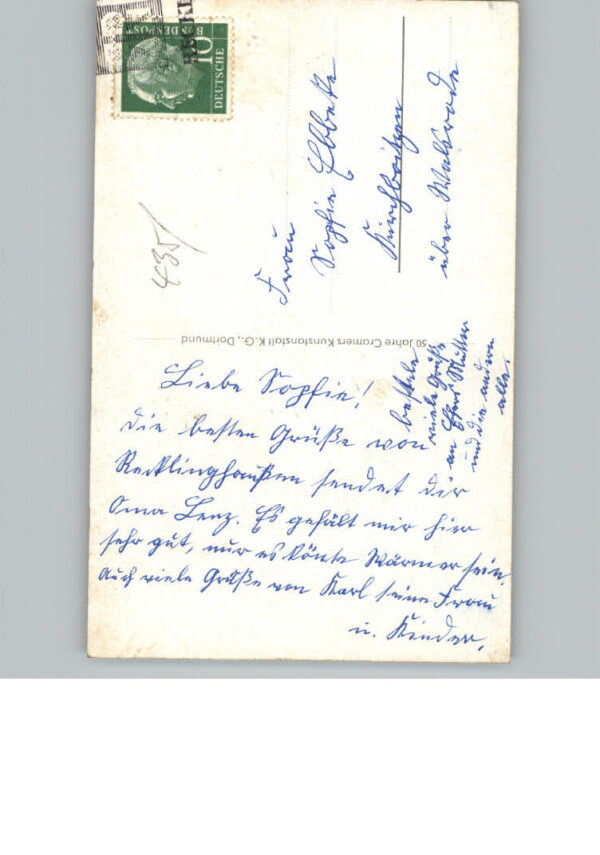 Liebe Sophie!
Die besten Grüße von
Recklinghaußen sendet dir
Oma Lenz. Es gefält mir hier
sehr gut, nur es könte Wärmer sein.
Auch viele Grüße von Karl seine Frau
u. Kinder,
bestele
viele Grüße
an Mutter
und die andern
alle.
Frau
Sophie Ebbeke
Kirchboitzen
über Walsrode
50 Jahre Cramers Kunstanstalt K.G., Dortmund
435
DEUTSCHE
BUNDESPOST
10